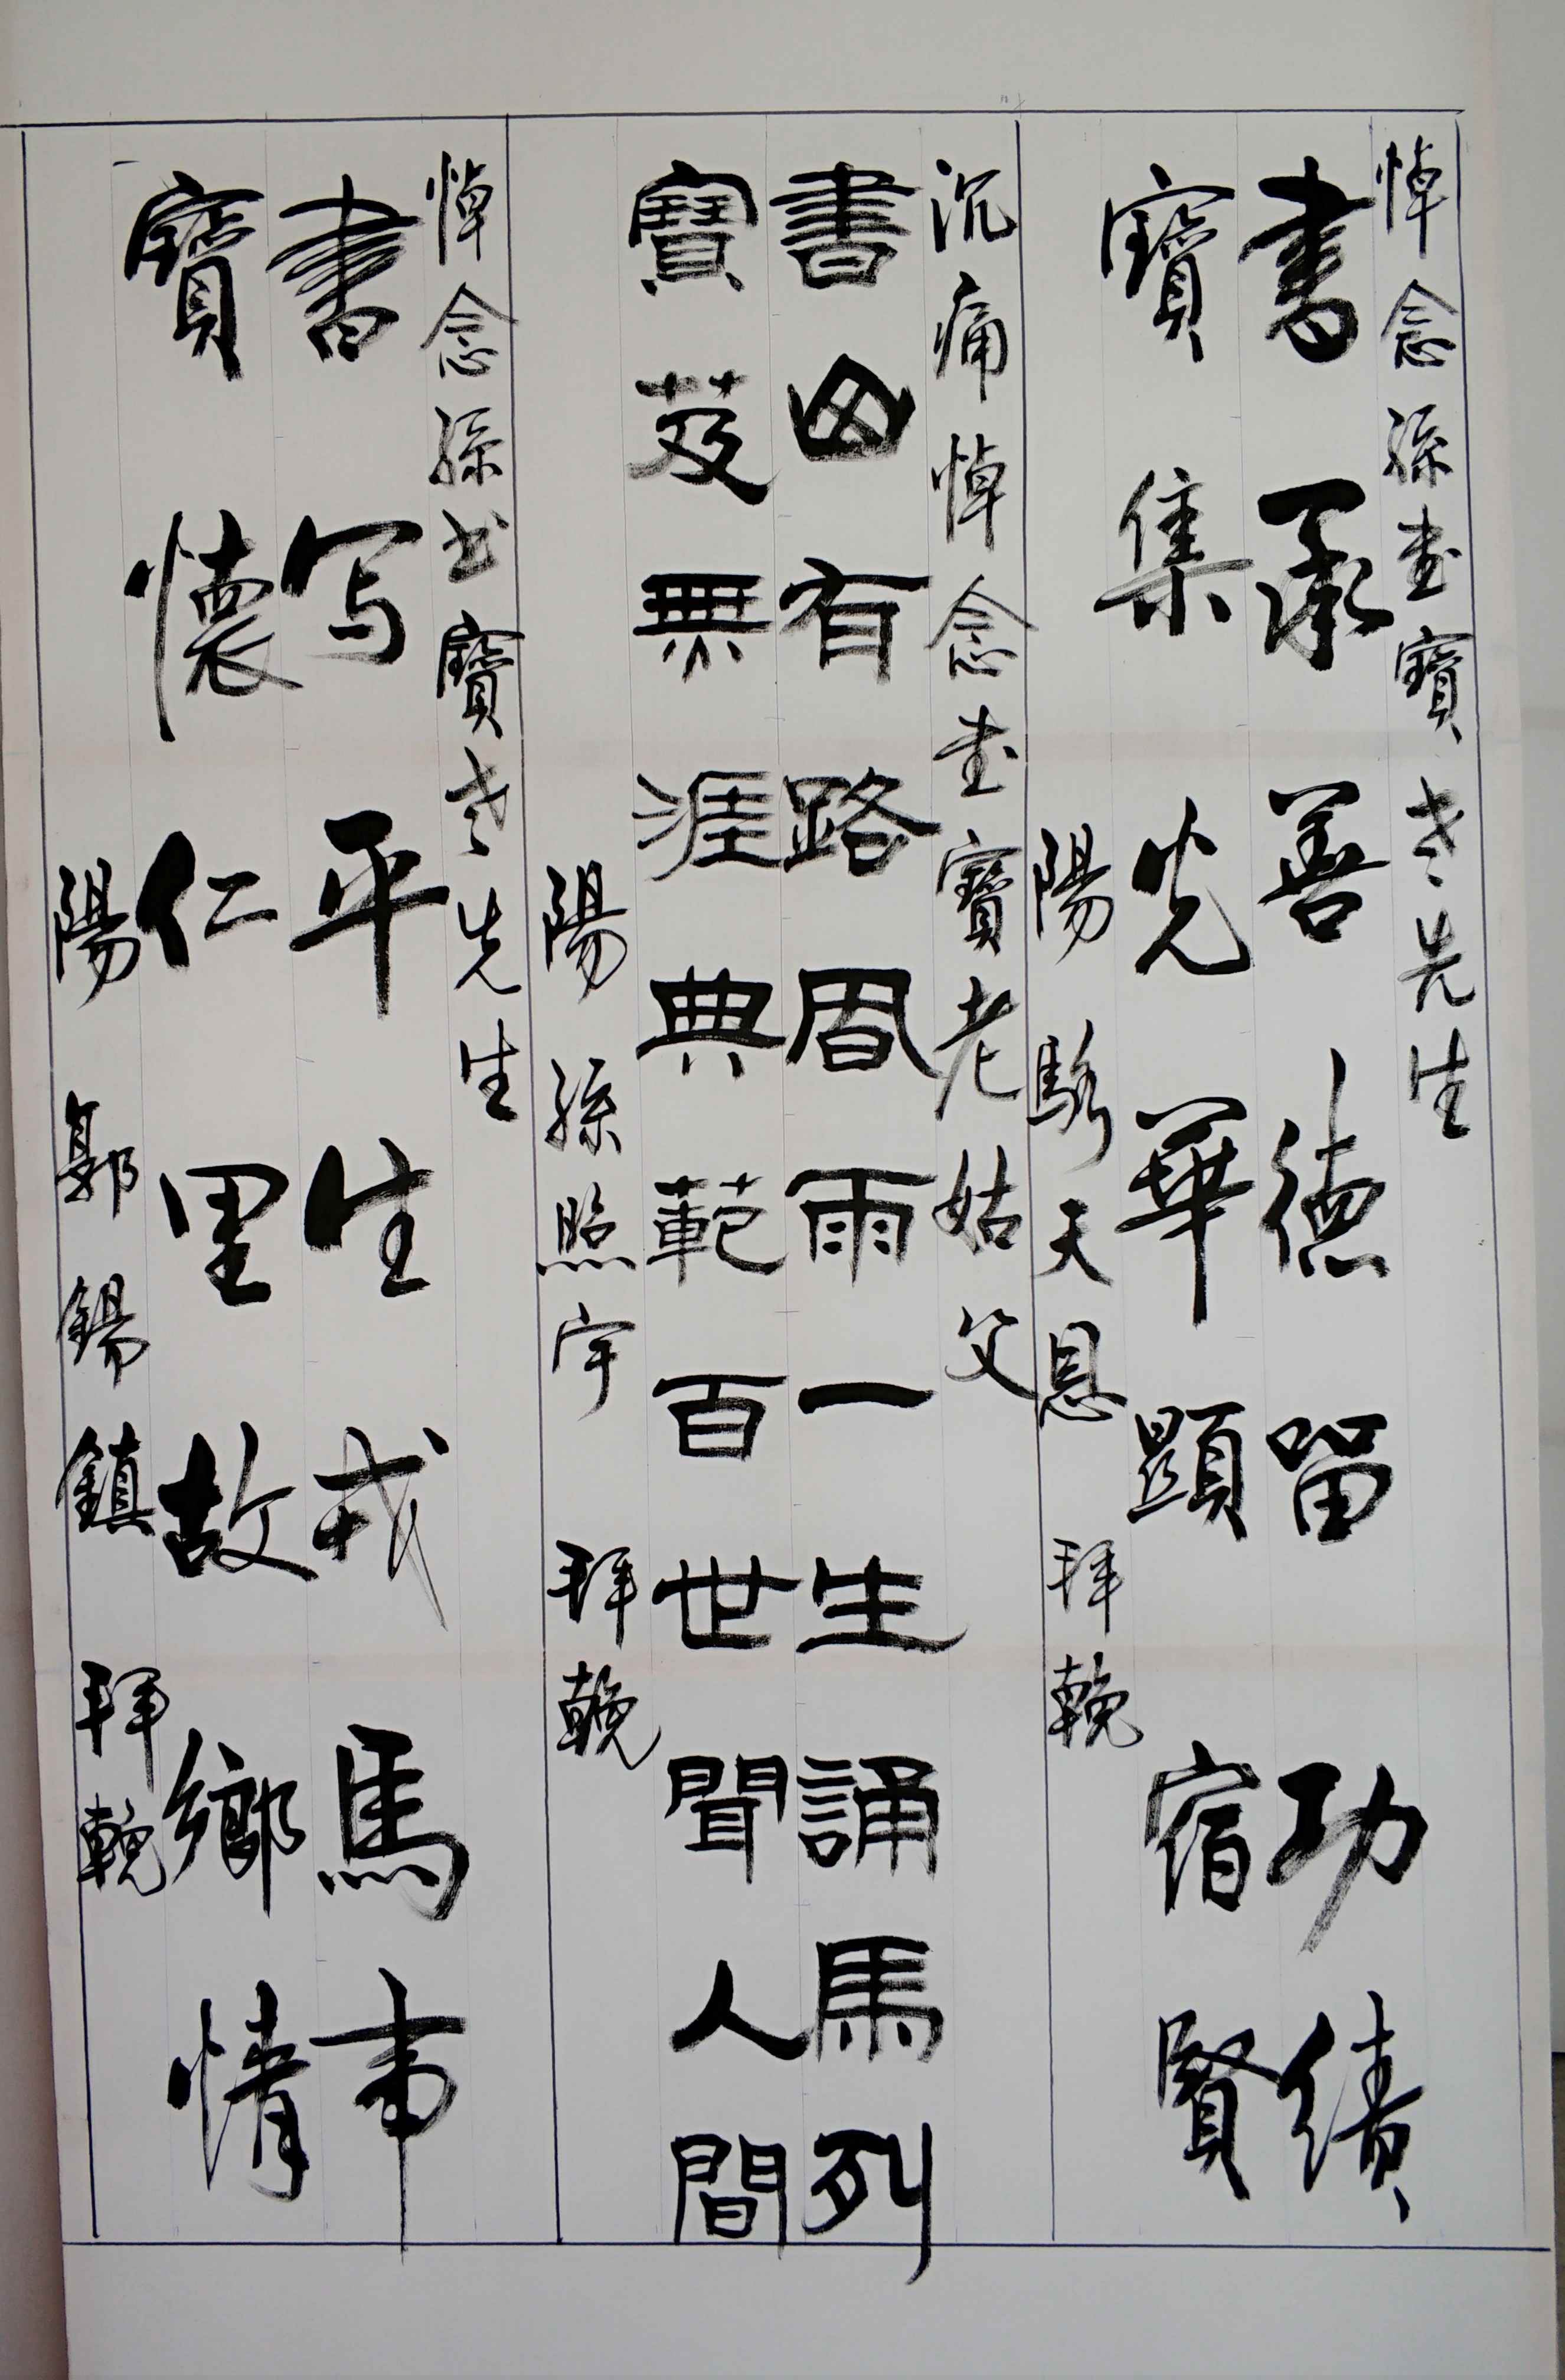 悼念孫書寶老先生
書承善德留功績
寶集光華顯宿賢
陽 駱天恩 拜輓
沉痛悼念書寶老姑父
書有路風雨一生誦馬列
寶芨無涯典範百世聞人間
陽 孫照宇 拜輓
悼念孫书寶老先生
書写平生戎馬事
寶懷仁里故鄉情
陽 郭錫鎮 拜輓